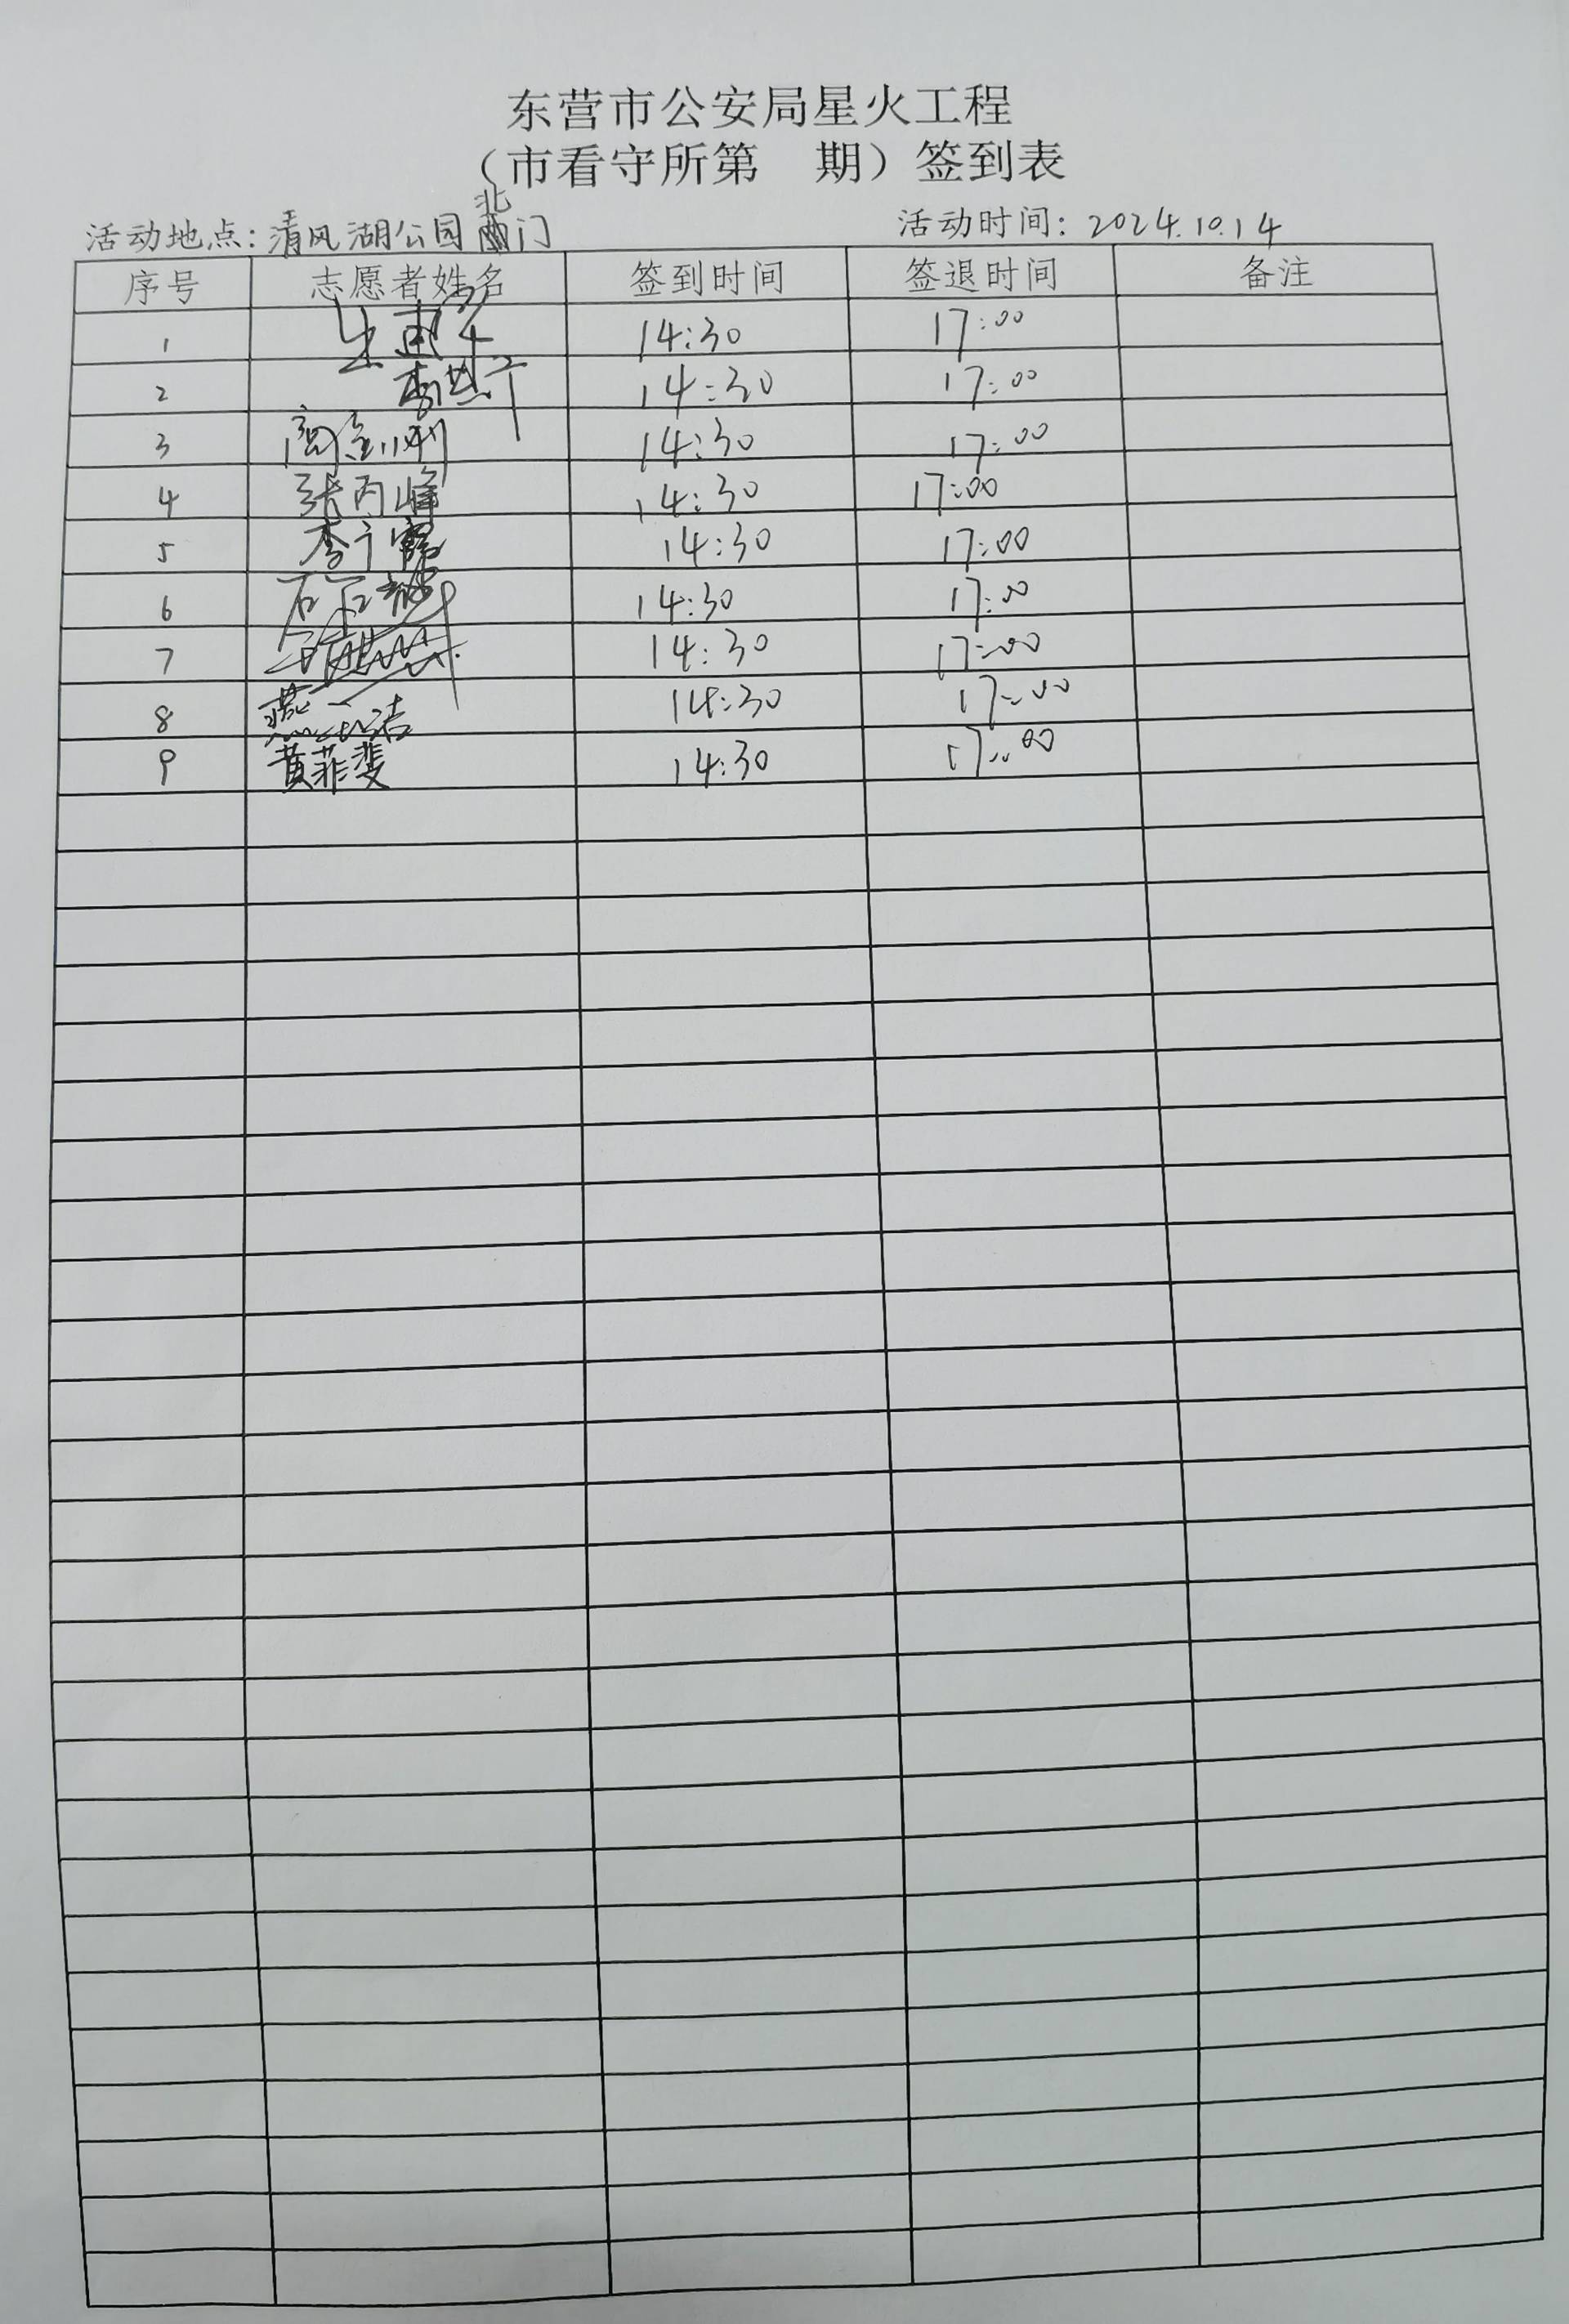 东营市公安局星火工程
（市看守所第 期）签到表
活动地点：清风湖公园北门 活动时间：2024.10.14
序号 志愿者姓名 签到时间 签退时间 备注
1 14:30 17:00
2 14:30 17:00
3 14:30 17:00
4 张丙峰 14:30 17:00
5 14:30 17:00
6 14:30 17:00
7 14:30 17:00
8 14:30 17:00
9 黄菲斐 14:30 17:00